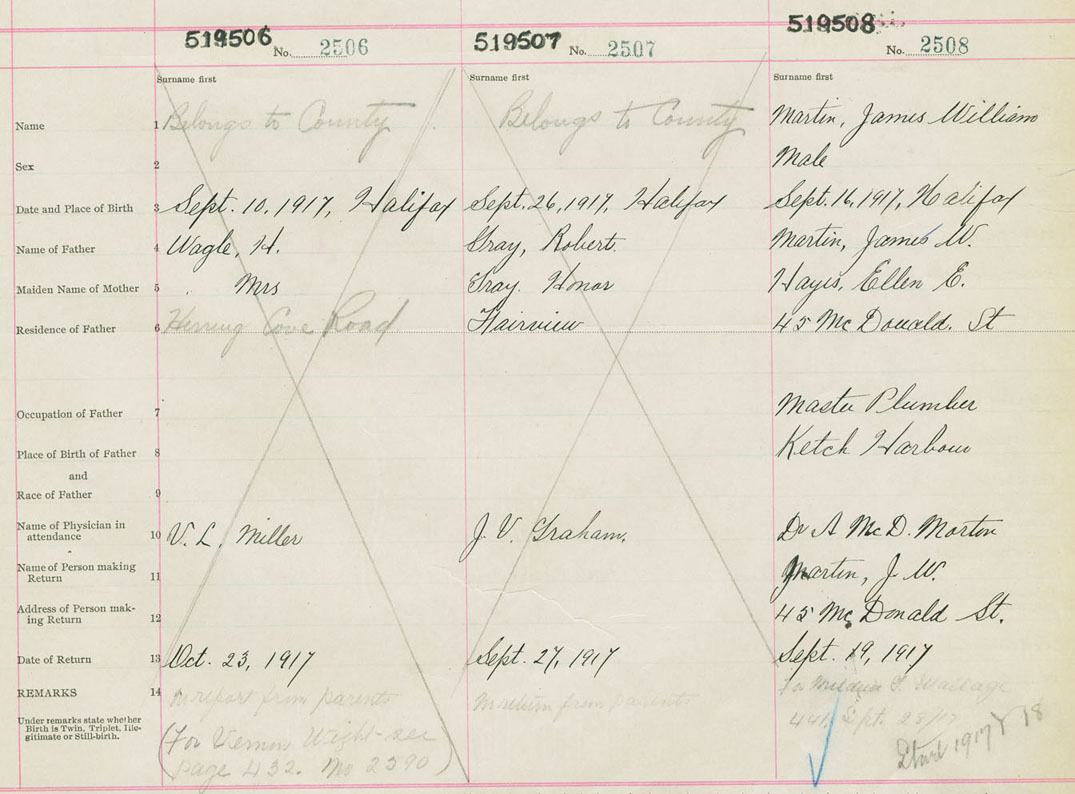 519506 No. 2506
519507 No. 2507
519508 No. 2508
Surname first
Surname first
Surname first
Name 1 Belongs to County Belongs to County Martin, James William
Sex 2 Male
Date and Place of Birth 3 Sept. 10, 1917, Halifax Sept. 26, 1917, Halifax Sept. 16, 1917, Halifax
Name of Father 4 Wagle, H. Gray, Robert. Martin, James W.
Maiden Name of Mother 5 Mrs Gray. Honor Hayes, Ellen E.
Residence of Father 6 Herring Cove Road Fairview 45 McDonald. St
Occupation of Father 7 Master Plumber
Place of Birth of Father 8 Ketch Harbour
and
Race of Father 9
Name of Physician in
attendance 10 V. L. Miller J. V. Graham. Dr A McD. Morton
Name of Person making
Return 11 Martin, J. W.
Address of Person mak-
ing Return 12 45 McDonald St.
Date of Return 13 Oct. 23, 1917 Sept. 27, 1917 Sept. 19, 1917
REMARKS 14 No report from parents No return from parents For
Under remarks state whether
Birth is Twin, Triplet, Ille-
gitimate or Still-birth.
(For Vernon Wight-see
page 432. No 2590)
441. Sept. 28/17
1917 18